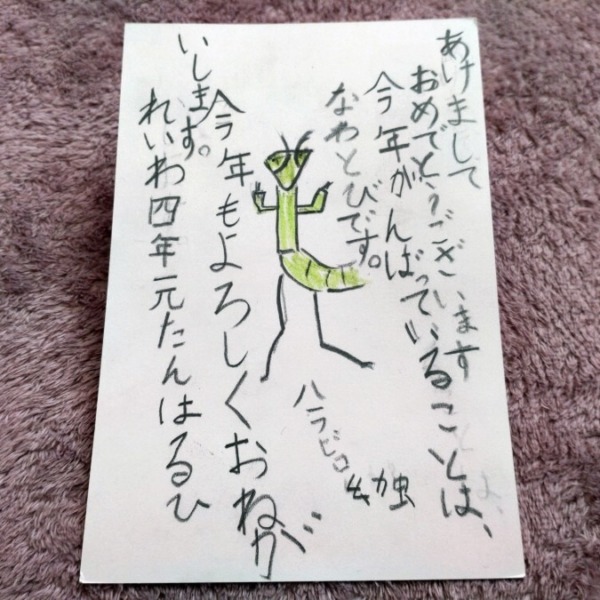 あけまして
おめでとうございます
今年がんばっていることは、
なわとびです。
今年もよろしくおねが
いします。
れいわ四年元たんはるひ
ハラビロ
幼虫